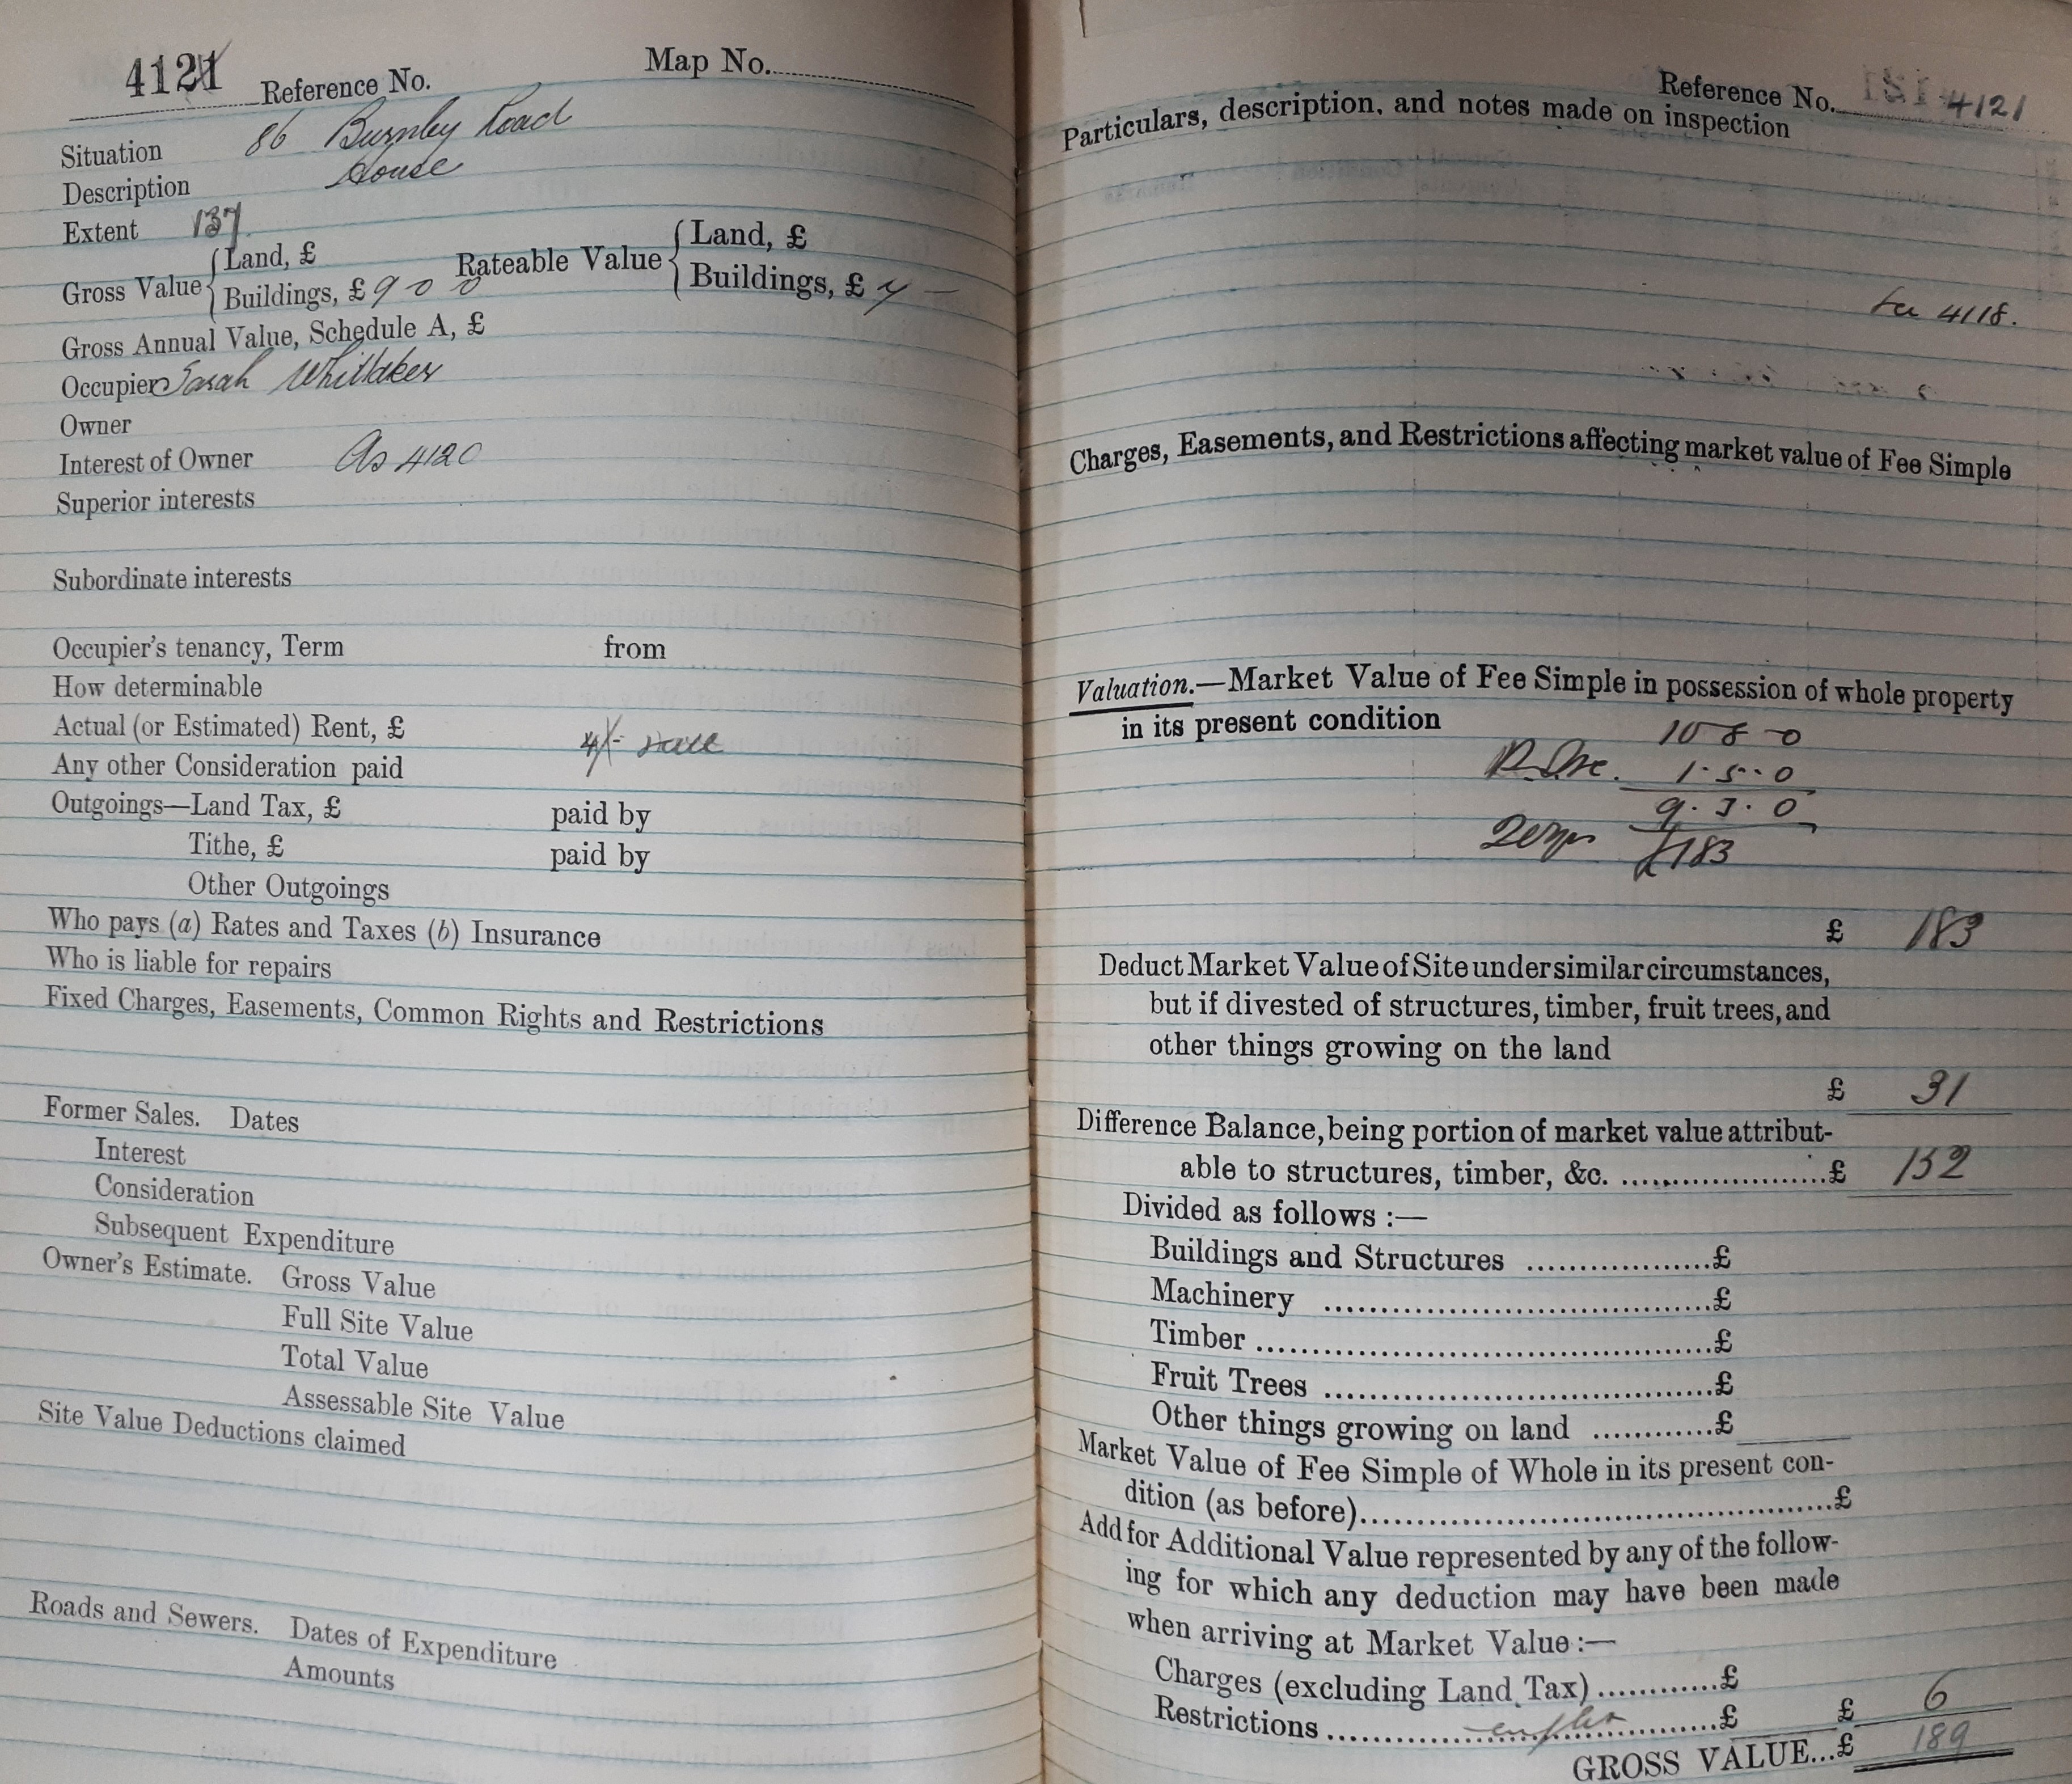 4121 Reference No. Map No.
Situation 86 Burnley Road
Description House
Extent 137
Gross Value { Land, £ Rateable Value { Land, £
Buildings, £ 9 0 0 Buildings, £ 7 -
Gross Annual Value, Schedule A, £
Occupier Sarah Whittaker
Owner
Interest of Owner As 4120
Superior interests
Subordinate interests
Occupier's tenancy, Term from
How determinable
Actual (or Estimated) Rent, £ 4/-
Any other Consideration paid
Outgoings—Land Tax, £ paid by
Tithe, £ paid by
Other Outgoings
Who pays (a) Rates and Taxes (b) Insurance
Who is liable for repairs
Fixed Charges, Easements, Common Rights and Restrictions
Former Sales. Dates
Interest
Consideration
Subsequent Expenditure
Owner's Estimate. Gross Value
Full Site Value
Total Value
Assessable Site Value
Site Value Deductions claimed
Roads and Sewers. Dates of Expenditure
Amounts
Reference No. 4121
Particulars, description, and notes made on inspection
4118.
Charges, Easements, and Restrictions affecting market value of Fee Simple
Valuation.—Market Value of Fee Simple in possession of whole property
in its present condition
10 8 0
1.5.0
9.3.0
£183
£ 183
Deduct Market Value of Site under similar circumstances,
but if divested of structures, timber, fruit trees, and
other things growing on the land
£ 31
Difference Balance, being portion of market value attribut-
able to structures, timber, &c. £ 152
Divided as follows :—
Buildings and Structures £
Machinery £
Timber £
Fruit Trees £
Other things growing on land £
Market Value of Fee Simple of Whole in its present con-
dition (as before) £
Add for Additional Value represented by any of the follow-
ing for which any deduction may have been made
when arriving at Market Value :—
Charges (excluding Land Tax) £
Restrictions £ £ 6
GROSS VALUE...£ 189